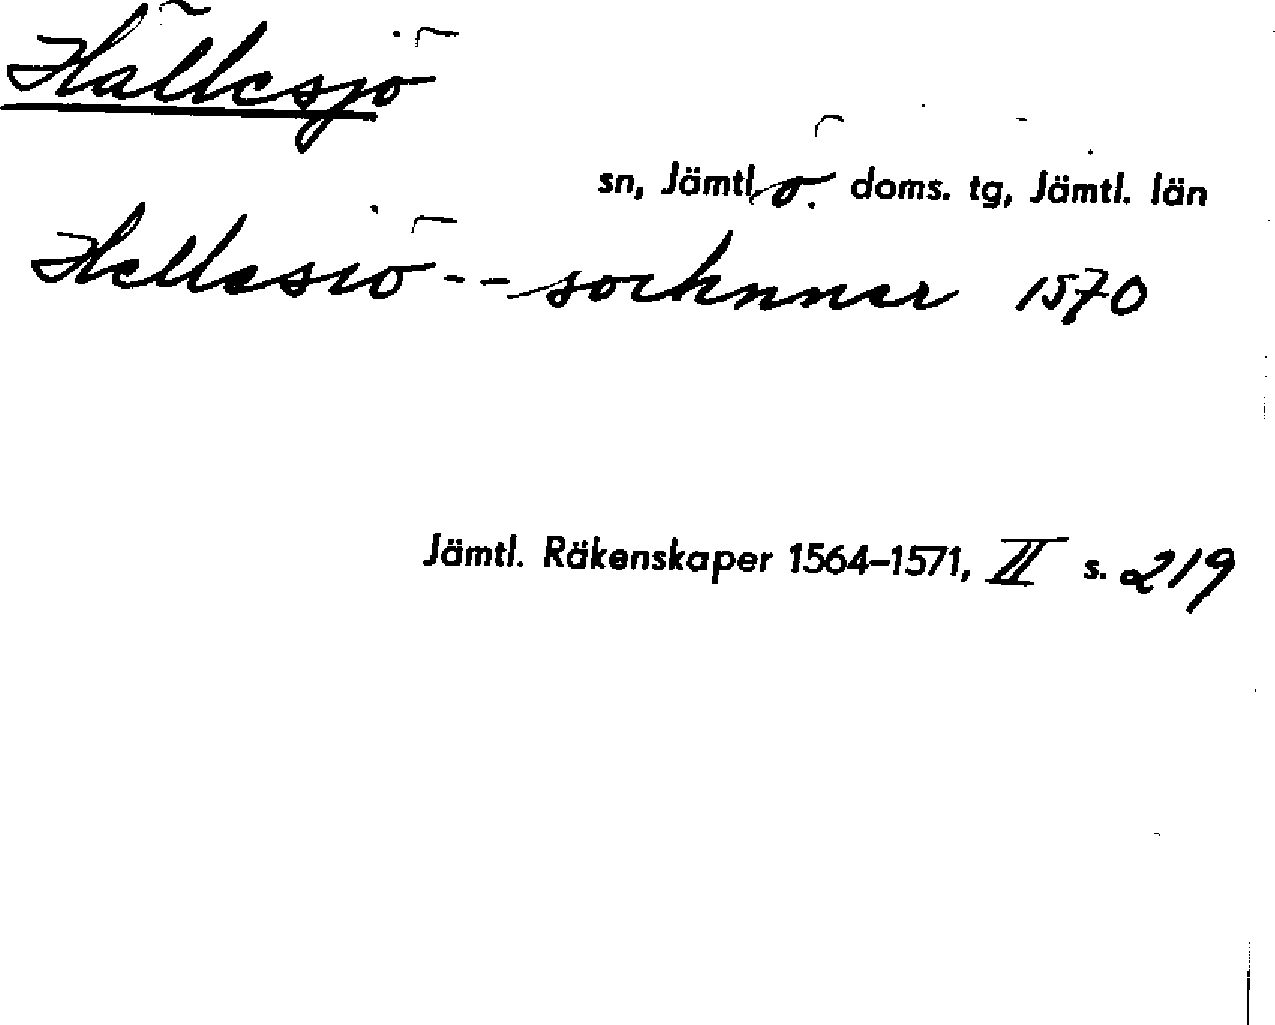 Hällesjö
sn, Jämtl. ö. doms. tg, Jämtl. län
Hellesiö - - socknner 1570
Jämtl. Räkenskaper 1564–1571, II s. 219